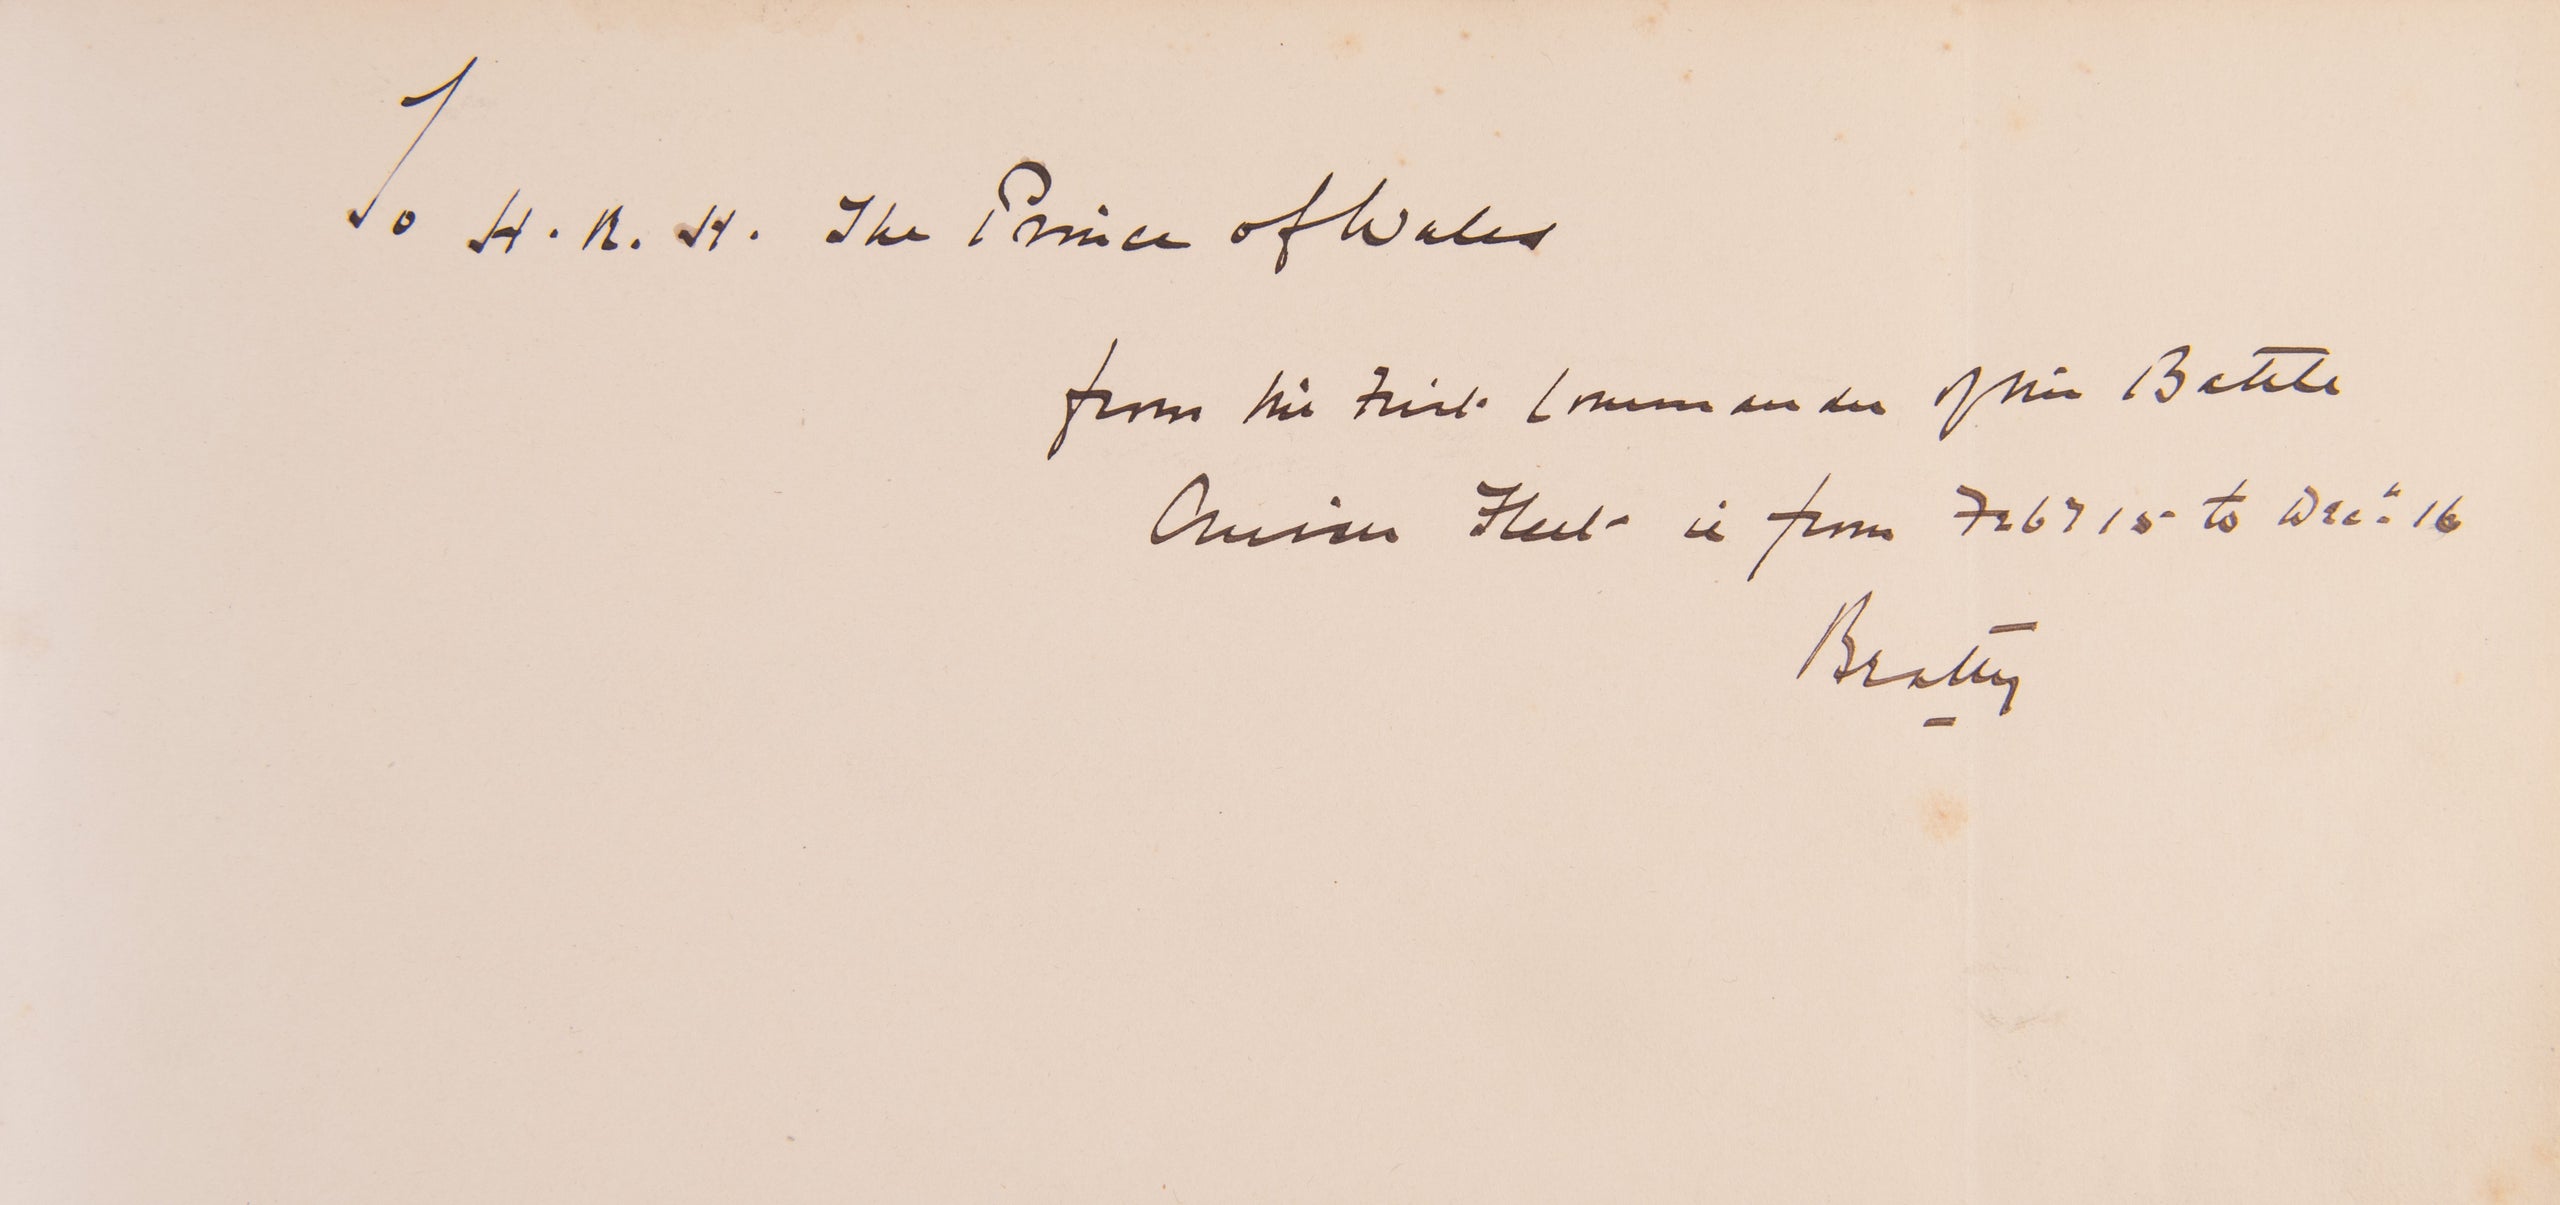 To H.R.H. The Prince of Wales
from the First Commander of the Battle
Cruiser Fleet ie from Feby 15 to Decr 16
Beatty